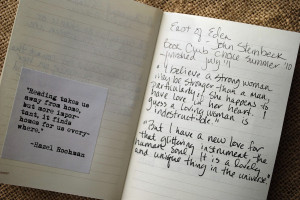 "Reading takes us
away from home,
but more impor-
tant, it finds
homes for us every-
where."
-Hazel Rochman
East of Eden
John Steinbeck
Book Club Choice Summer '10
finished July 11
"I believe a strong woman
may be stronger than a man,
particularly if she happens to
have love in her heart. I
guess a loving woman is
indestructible."
"But I have a new love for
that glittering instrument, the
human soul. It is a lovely
and unique thing in the universe."